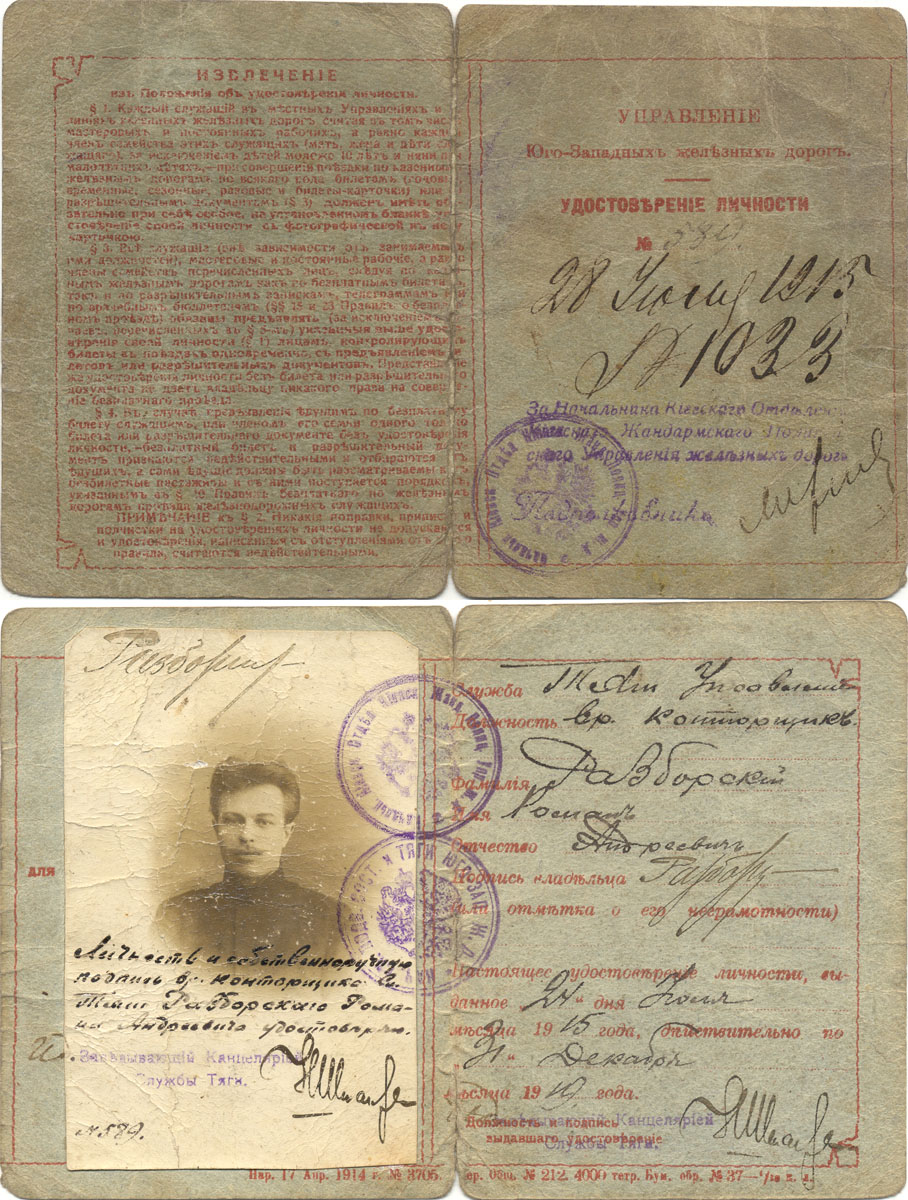 ИЗВЛЕЧЕНІЕ
изъ Положенія объ удостовѣреніи личности.
§ 1. Каждый служащій въ мѣстныхъ Управленіяхъ и
линіяхъ казенныхъ желѣзныхъ дорогъ, считая въ томъ числ
мастеровыхъ и постоянныхъ рабочихъ, а равно кажд
членъ семейства этихъ служащихъ (мать, жена и дѣти сл
жащаго), за исключеніемъ дѣтей моложе 10 лѣтъ и няни при
малолѣтнихъ дѣтяхъ,—при совершеніи поѣздки по казеннымъ
желѣзнымъ дорогамъ по всякаго рода билетамъ (годовы
временные, сезонные, разовые и билеты-карточки) или
разрѣшительнымъ документамъ (§ 3) долженъ имѣть об
зательно при себѣ особое, на установленномъ бланкѣ, у
стовѣреніе своей личности съ фотографической въ не
карточкою.
§ 3. Всѣ служащіе (внѣ зависимости отъ занимаемы
ими должностей), мастеровые и постоянные рабочіе, а рав
члены семействъ перечисленныхъ лицъ, слѣдуя по
нымъ желѣзнымъ дорогамъ какъ по безплатнымъ билета
такъ и по разрѣшительнымъ запискамъ, телеграммамъ
по врачебнымъ бюллетенямъ (§§ 25 и 23 Правилъ о безпл
номъ проѣздѣ) обязаны предъявлять (за исключеніемъ
чаевъ, перечисленныхъ въ § 5-мъ) указанныя выше удос
вѣренія своей личности (§ 1) лицамъ, контролирующимъ
билеты въ поѣздахъ, одновременно съ предъявленіемъ
летовъ или разрѣшительныхъ документовъ. Предъявленіе
же удостовѣренія личности безъ билета или разрѣшительно
документа не даетъ владѣльцу никакого права на сове
ніе безплатнаго проѣзда.
§ 4. Въ случаѣ предъявленія ѣдущимъ по безплатному
билету служащимъ, или членомъ его семьи одного тол
билета или разрѣшительнаго документа безъ удостовѣре
личности, безплатный билетъ и разрѣшительный до
ментъ признаются недѣйствительными и отбираются
ѣдущихъ, а сами ѣдущіе должны быть разсматриваемы
безбилетные пассажиры и съ ними поступается порядко
указаннымъ въ § 10 Правилъ безплатнаго по желѣзн
дорогамъ проѣзда желѣзнодорожныхъ служащихъ.
ПРИМѢЧАНІЕ къ § 2. Никакія поправки, приписки
подчистки на удостовѣреніяхъ личности не допускаются
и удостовѣренія, выписанныя съ отступленіями отъ
правила, считаются недѣйствительными.
УПРАВЛЕНІЕ
Юго-Западныхъ желѣзныхъ дорогъ.
УДОСТОВѢРЕНІЕ ЛИЧНОСТИ
№ 589.
28 Іюня 1915
№ 1033
За Начальника Кіевскаго Отдѣленія
Кіевскаго Жандармскаго Полицей
скаго Управленія желѣзныхъ дорогъ
Подполковникъ
Разборскій
для
Личность и собственноручную
подпись вр. конторщика сл.
Тяги Разборскаго Рома-
на Андреевича удостовѣряю.
Завѣдывающій Канцеляріей
Службы Тяги.
№ 589.
Служба Тяги Управленія
Должность вр. конторщикъ
Фамилія Разборскій
Имя Романъ
Отчество Андреевичъ
Подпись владѣльца
(или отмѣтка о его неграмотности)
Настоящее удостовѣреніе личности, вы-
данное „24“ дня Іюня
мѣсяца 1915 года, дѣйствительно по
„31“ Декабря
мѣсяца 19 года.
Должность и подпись
выдавшаго удостовѣреніе
Завѣдывающій Канцеляріей
Службы Тяги.
Нар. 17 Апр. 1914 г. № 3705.
ер. Общ. № 212. 4000 тетр. Бум. обр. № 37